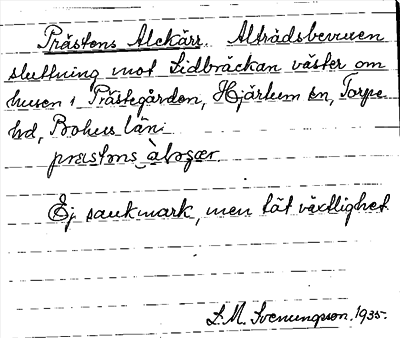 Prästens Alekärr. Alträdsbevuxen
sluttning mot Lidbräckan väster om
husen i Prästegården, Hjärtum sn, Torpe
hd, Bohus län.
præstens
Ej sankmark, men tät växtlighet
L. M. Svenungsson. 1935.